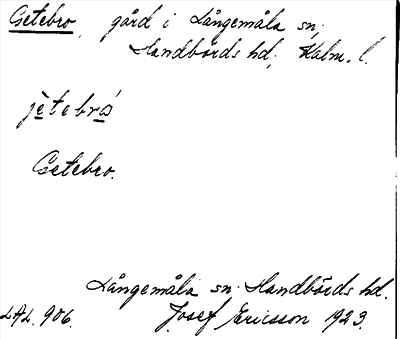 Getebro, gård i Långemåla sn,
Handbörds hd, Kalm. l.
jètebró
Getebro.
Långemåla sn. Handbörds hd.
LAL. 906. Josef Ericsson 1923.